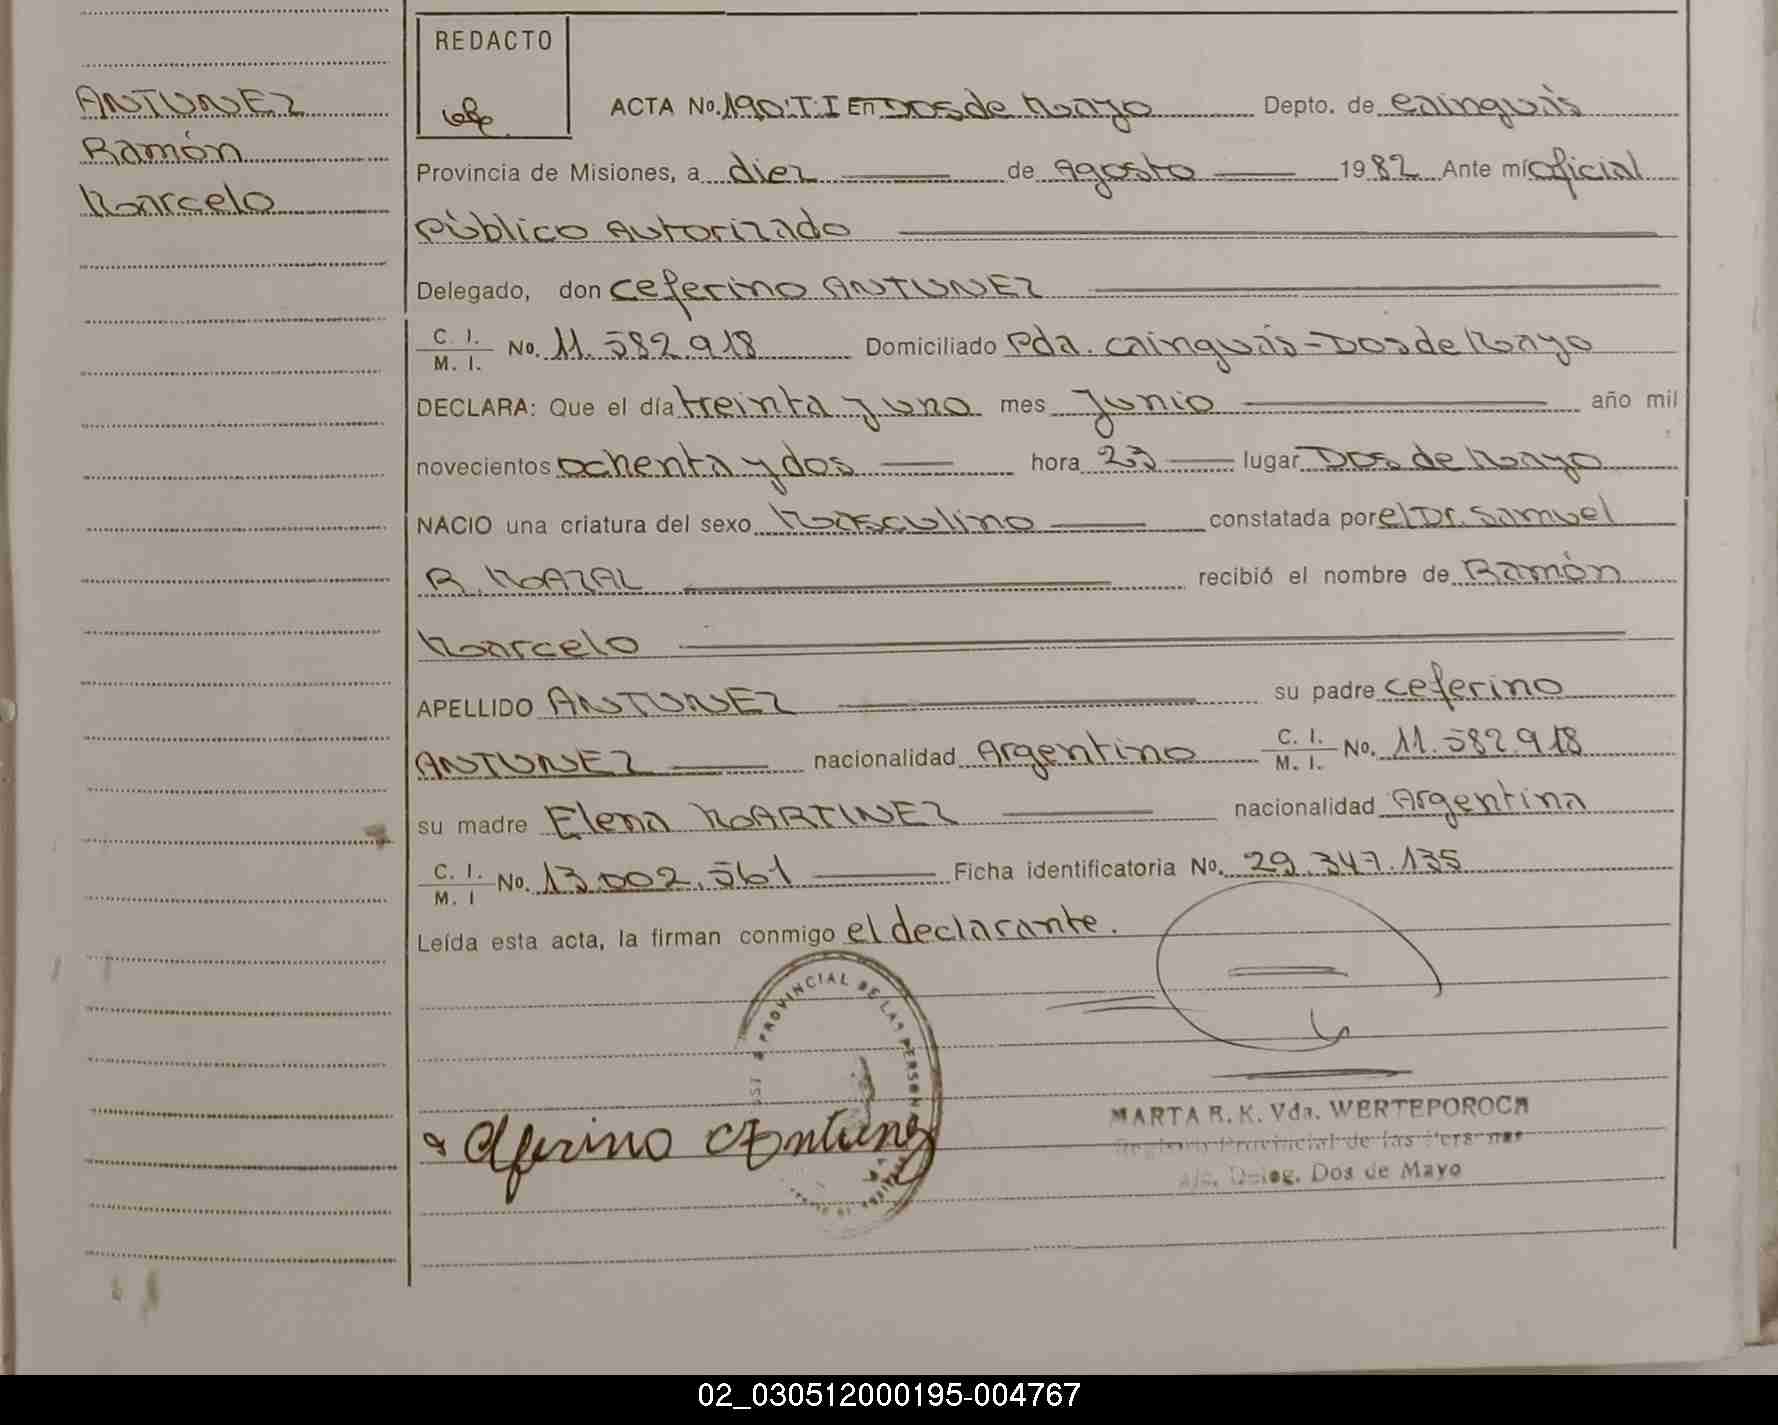 REDACTO
ANTUNEZ
Ramón
Marcelo
ACTA No. 190.T.I En Dos de Mayo Depto. de Cainguás
Provincia de Misiones, a diez de Agosto 1982 Ante mí Oficial
Público Autorizado
Delegado, don Ceferino ANTUNEZ
C. I. / M. I. No. 11.582.918 Domiciliado Pda. Cainguás-Dos de Mayo
DECLARA: Que el día treinta y uno mes Junio año mil
novecientos ochenta y dos hora 23 lugar Dos de Mayo
NACIO una criatura del sexo Masculino constatada por el Dr. Samuel
R. MAZAL recibió el nombre de Ramón
Marcelo
APELLIDO ANTUNEZ su padre Ceferino
ANTUNEZ nacionalidad Argentino C. I. / M. I. No. 11.582.918
su madre Elena MARTINEZ nacionalidad Argentina
C. I. / M. I No. 13.002.561 Ficha identificatoria No. 29.347.135
Leída esta acta, la firman conmigo el declarante.
PROVINCIAL DE LAS PERSON
Ceferino Antunez
MARTA R. K. Vda. WERTEPOROCH
Registro Provincial de las Personas
Deleg. Dos de Mayo
02_030512000195-004767